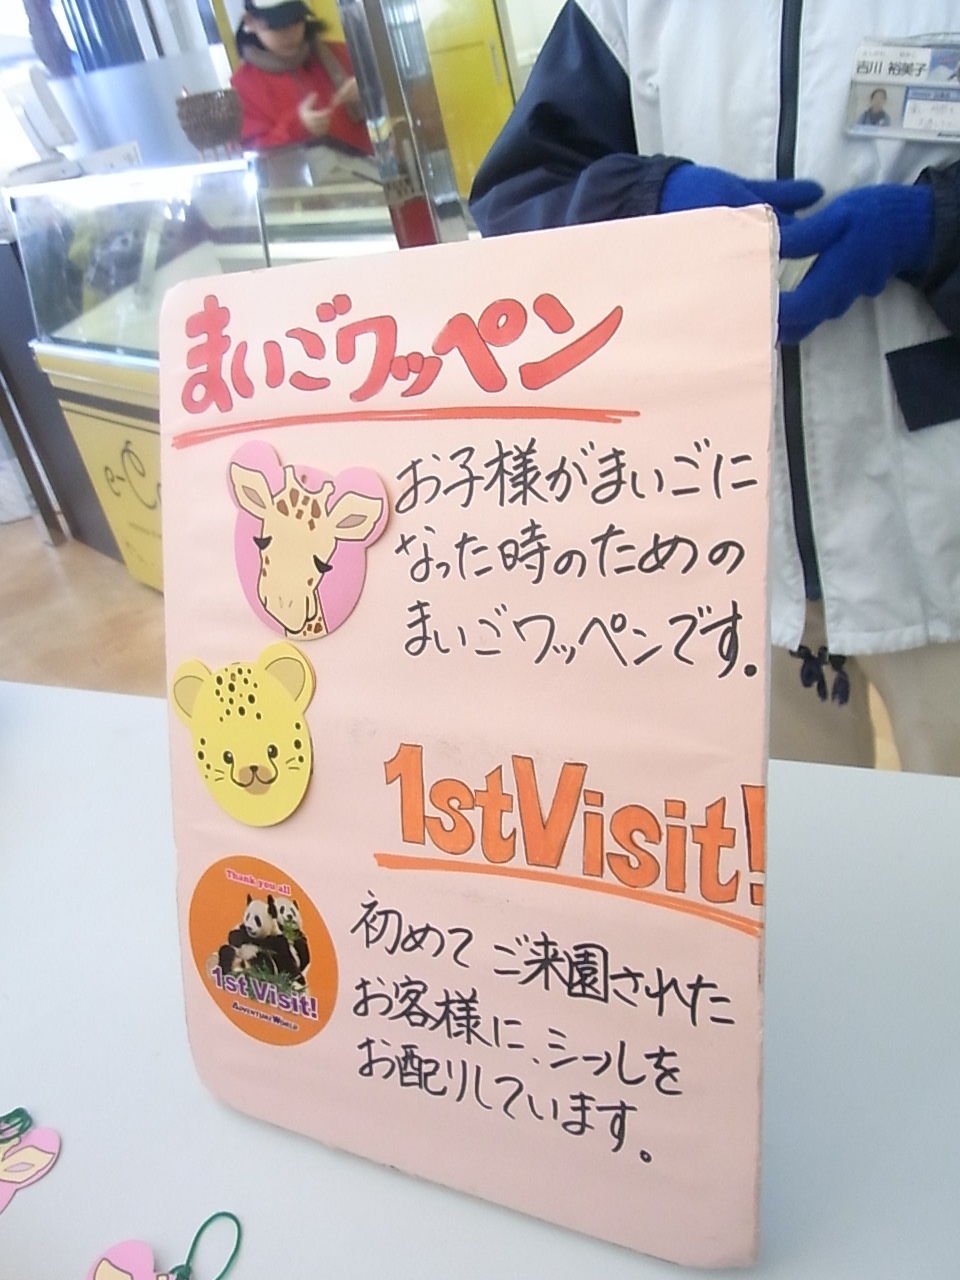 吉川 裕美子
まいごワッペン
お子様がまいごに
なった時のための
まいごワッペンです。
1st Visit!
Thank you all
1st Visit!
ADVENTURE WORLD
初めてご来園された
お客様に、シールを
お配りしています。